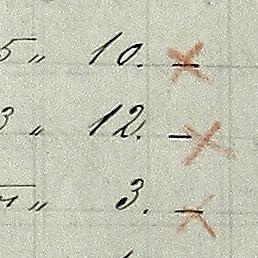 5 „ 10. –
3 „ 12. –
„ 3. –